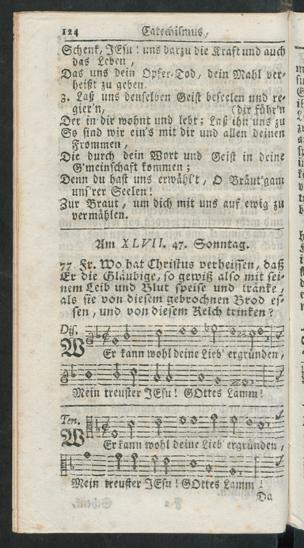 124 Catechismus,
Schenk, JEsu! uns darzu die Kraft und auch
das Leben,
Das uns dein Opfer-Tod, dein Mahl ver-
heißt zu geben.
3. Laß uns denselben Geist beseelen und re-
gier'n, (dir führ'n
Der in dir wohnt und lebt; Laß ihn uns zu
So sind wir ein's mit dir und allen deinen
Frommen,
Die durch dein Wort und Geist in deine
G'meinschaft kommen;
Denn du hast uns erwähl't, O Bräut'gam
uns'rer Seelen!
Zur Braut, um dich mit uns auf ewig zu
vermählen.
Am XLVII. 47. Sonntag.
77 Fr. Wo hat Christus verheissen, daß
Er die Gläubige, so gewiß also mit sei-
nem Leib und Blut speise und tränke,
als sie von diesem gebrochnen Brod es-
sen, und von diesem Kelch trinken?
Dis.
W
Er kann wohl deine Lieb' ergründen,
Mein treuster JEsu! GOttes Lamm!
Ten.
W
Er kann wohl deine Lieb' ergründen,
Mein treuster JEsu! GOttes Lamm!
Da